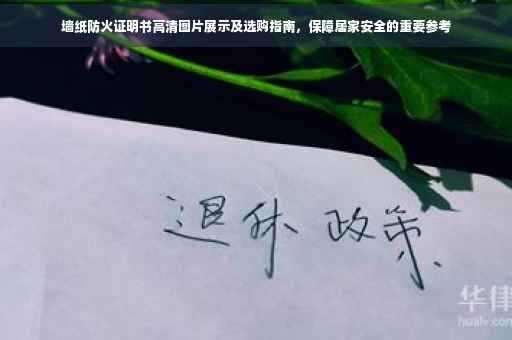 墙纸防火证明书高清图片展示及选购指南，保障居家安全的重要参考
退休 政策
华律
hualv.com